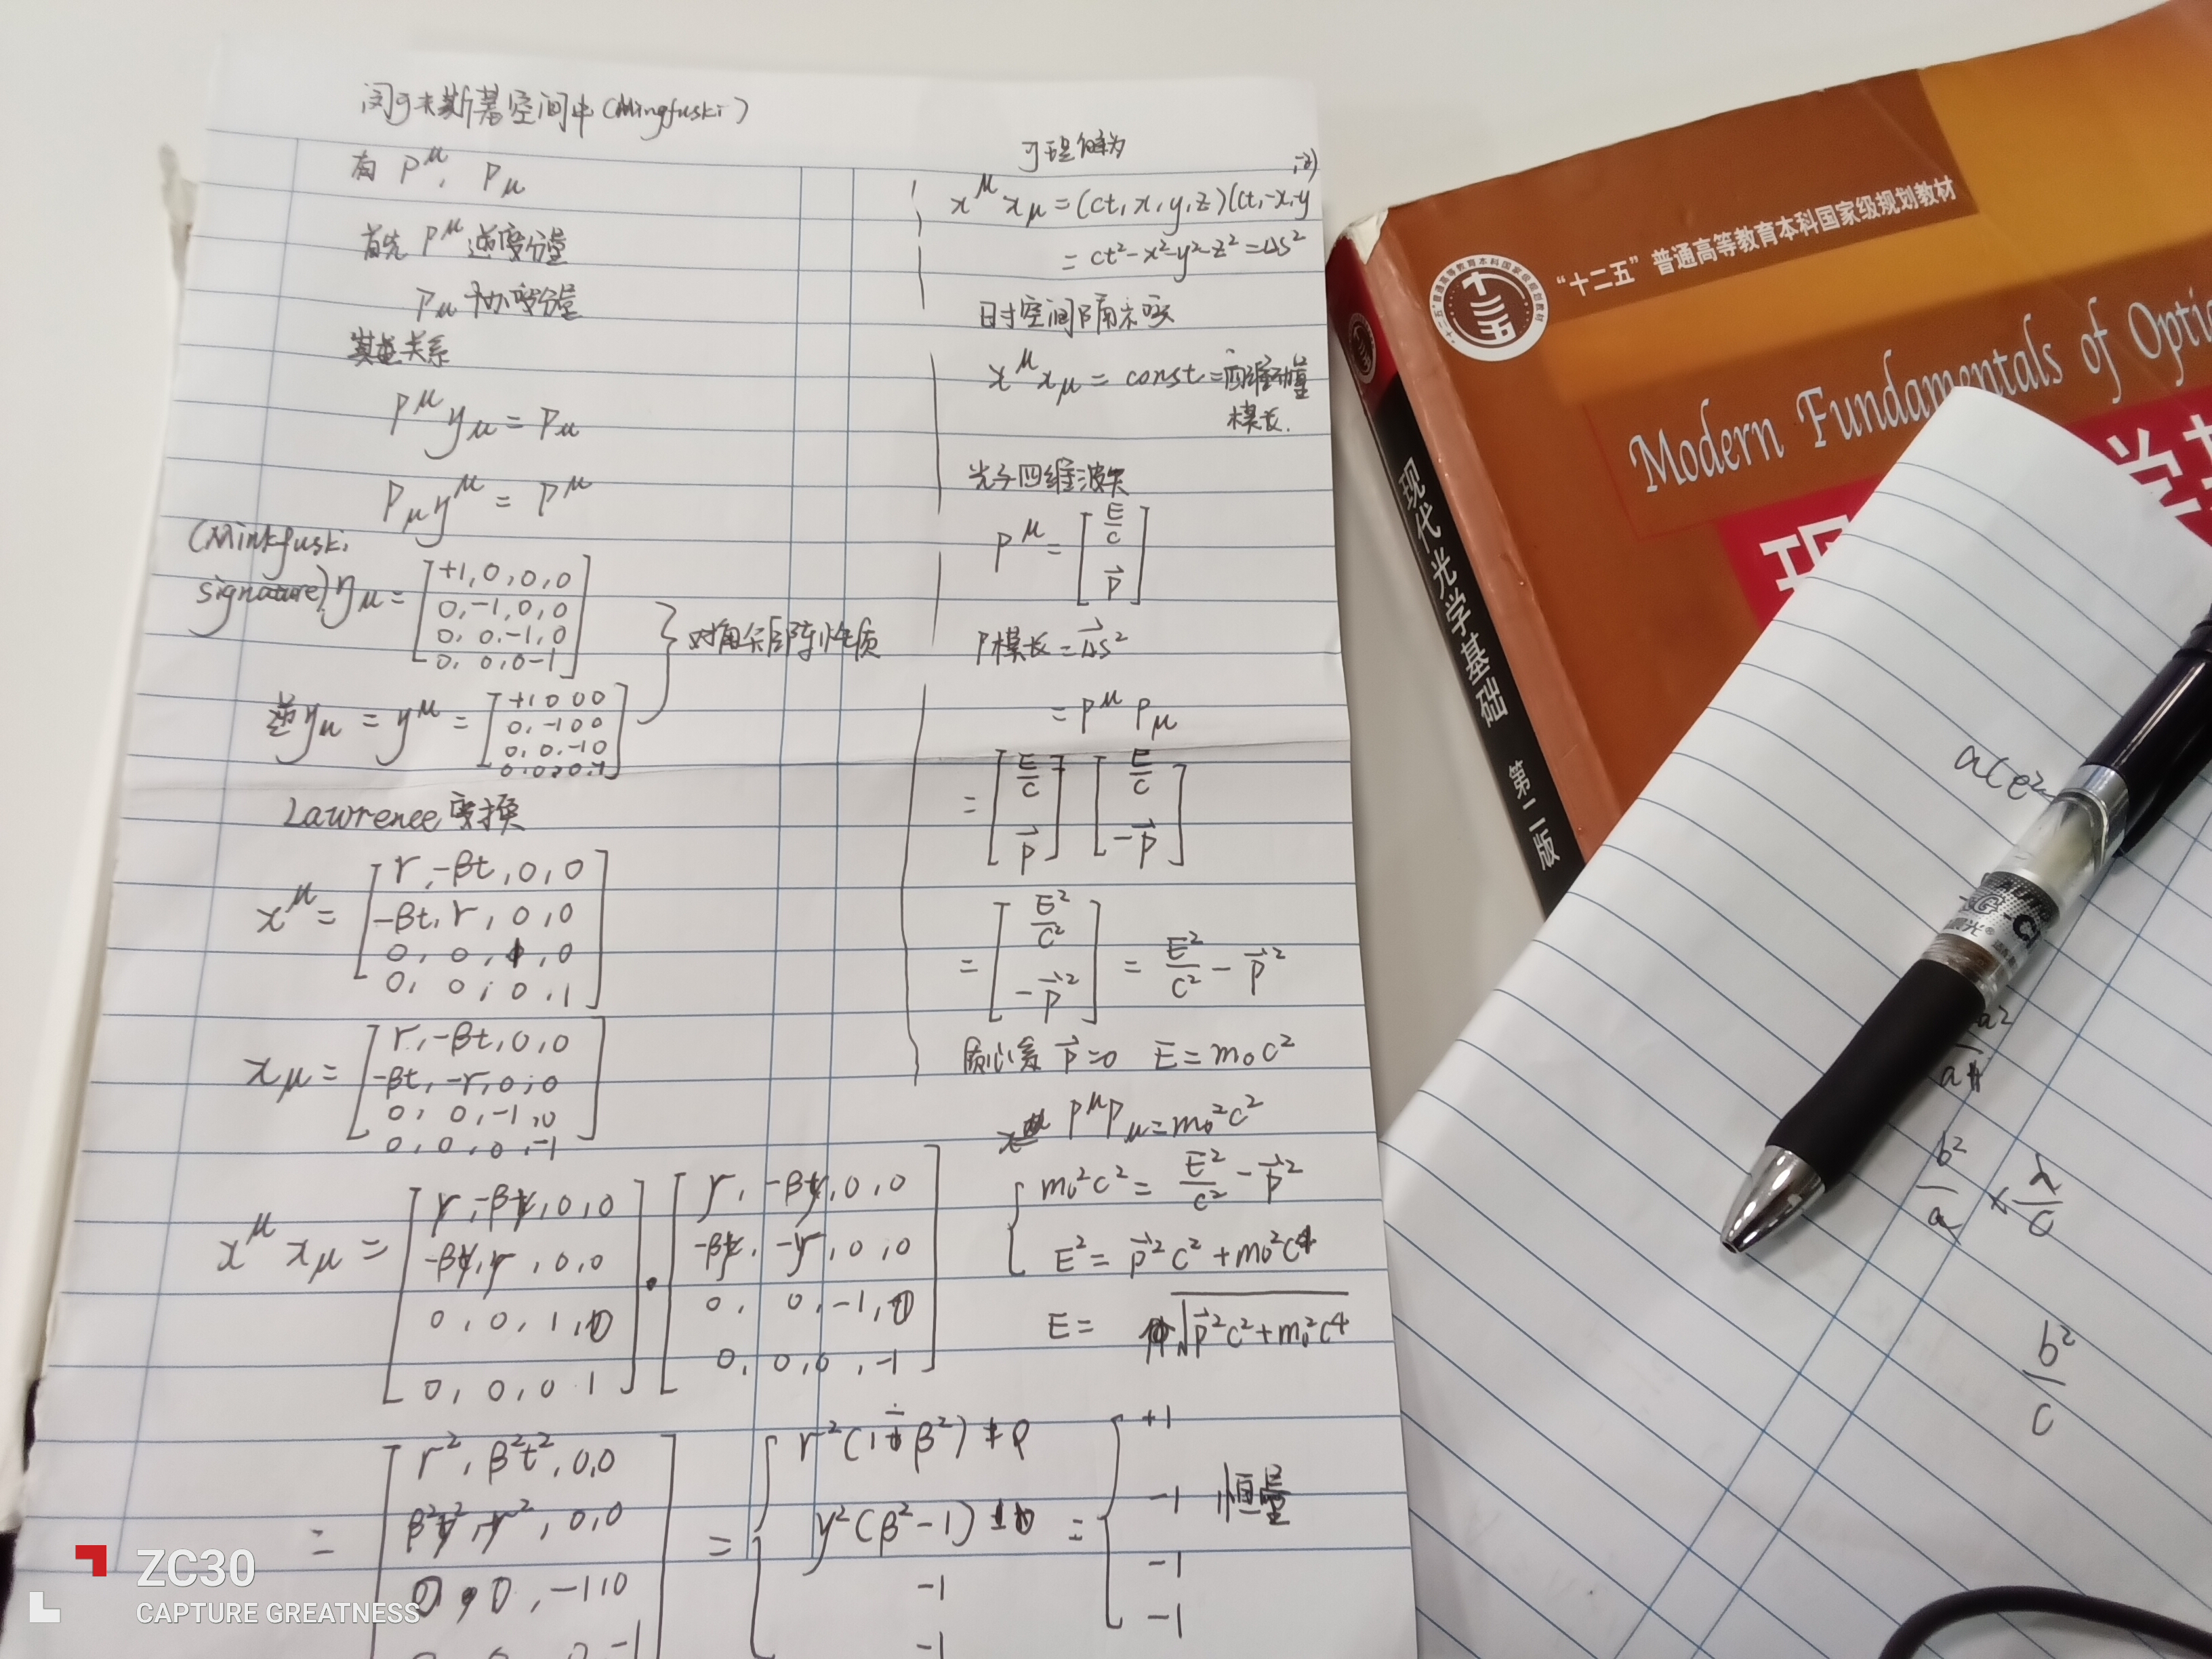 闵可夫斯基空间中(Mingfuski)
有 P^μ, P_μ
首先 P^μ 逆变分量
P_μ 协变分量
其关系
P^μ y_μ = P_μ
P_μ y^μ = P^μ
(Minkfuski
signature) η_μ = [+1, 0, 0, 0
0, -1, 0, 0
0, 0, -1, 0
0, 0, 0 -1]
} 对角矩阵性质
逆 y_μ = y^μ = [+1 0 0 0
0, -1 0 0
0, 0, -1 0
0, 0, 0, -1]
Lawrence 变换
x^μ = [r, -βt, 0, 0
-βt, r, 0, 0
0, 0, 1, 0
0, 0, 0, 1]
x_μ = [r, -βt, 0, 0
-βt, -r, 0, 0
0, 0, -1, 0
0, 0, 0, -1]
x^μ x_μ = [γ, -βγ, 0, 0
-βγ, γ, 0, 0
0, 0, 1, 0
0, 0, 0 1] · [γ, -βγ, 0, 0
-βγ, -γ, 0, 0
0, 0, -1, 0
0, 0, 0, -1]
= [r², β²t², 0,0
0, 0, -1, 0
= { r²(1-β²)
γ²(β²-1)
-1
-1
= { +1
-1 恒量
-1
-1
可理解为
x^μ x_μ = (ct, x, y, z)(ct, -x, -y, -z)
= ct² - x² - y² - z² = Δs²
时空间隔不变
x^μ x_μ = const = 四维动量
模长.
光子四维波矢
P^μ = [E/c
p⃗]
P模长 = Δs²
= P^μ P_μ
= [E/c
p⃗] [E/c
-p⃗]
= [E²/c²
-p⃗²] = E²/c² - p⃗²
质心系 p⃗=0 E = m₀c²
P^μ P_μ = m₀²c²
{ m₀²c² = E²/c² - p⃗²
E² = p⃗²c² + m₀²c⁴
E = √(p⃗²c² + m₀²c⁴)
"十二五"普通高等教育本科国家级规划教材
十二五
Modern Fundamentals of Opti
现代光学基础 第二版
b²/a × λ/c
b²/c
ZC30
CAPTURE GREATNESS